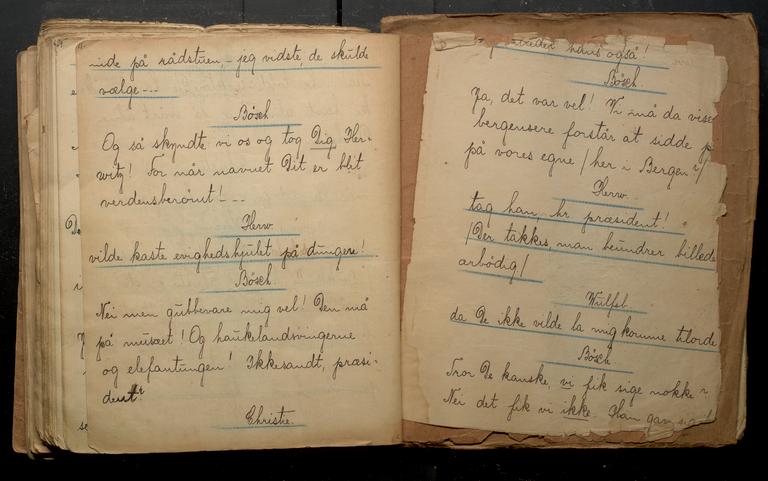 inde på rådstuen, – jeg vidste, de skulde
vælge ---
Bösch
Og så skyndte vi os og tog Dig, Her-
witz! For når navnet Dit er blit
verdensberömt! ---
Herw.
vilde kaste evighedshjulet på dungen!
Bösch
Nei men gubbevare mig vel! Den må
på musæet! Og haukelandsvingerne
og elefantungen! Ikkesandt, præsi-
dent?
Christie.
hans også!
Bösch
Ja, det var vel! Vi må da vise
bergensere forstår at sidde p
på vores egne / her i Bergen? /
Herw.
tag han, hr. præsident!
/ Der takkes, man beundrer billed
ærbödig /
Wulfsb.
da De ikke vilde la mig komme tilorde
Bösch
Tror De kanske, vi fik sige nokke?
Nei det fik vi ikke. Han gav